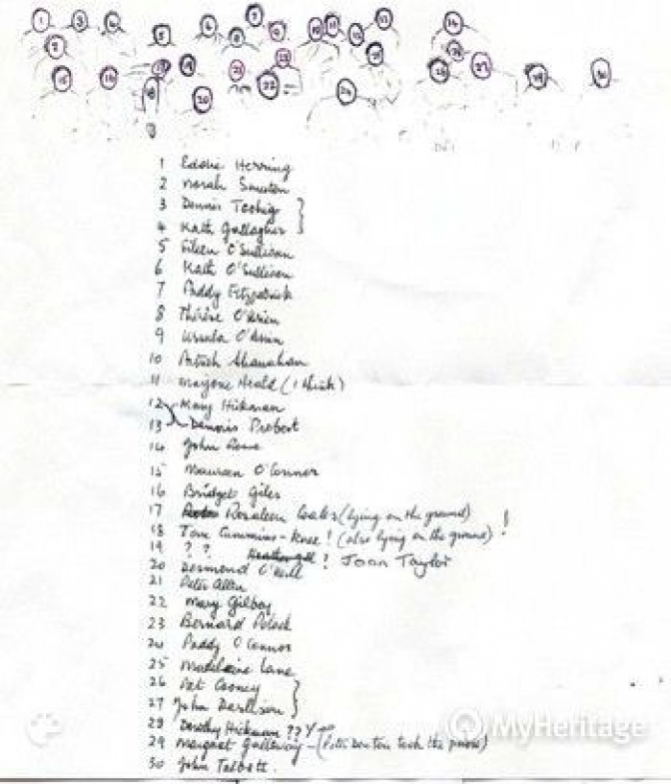 1 3 4 6 7 8 9 10 11 12 13 14
2 5
15 16 17 18 19 20 21 22 23 24 25 26 27 28 29 30
1 Eddie Herring
2 Norah
3 Dennis Toohig
4 Kath Gallagher
5 Eileen O'Sullivan
6 Kath O'Sullivan
7 Paddy Fitzpatrick
8 Thérèse O'Brien
9 Ursula O'Brien
10 Shanahan
11 Marjorie Heald (I think)
12 Mary Hickman
13 Dennis Probert
14 John Rowe
15 Maureen O'Connor
16 Bridget Giles
17 Rosaleen (lying on the ground)
18 Tom Cummins - knee! (also lying on the ground) !
19 ? ? ? Joan Taylor
20 Desmond O'Neill
21 Peter Allen
22 Mary Gilboy
23 Bernard Polack
24 Paddy O'Connor
25 Madeleine Lane
26 Pat Cooney
27 John Darlison
28 Dorothy Hickman ??
29 Margaret Galloway - (took the photo)
30 John Talbott.
MyHeritage